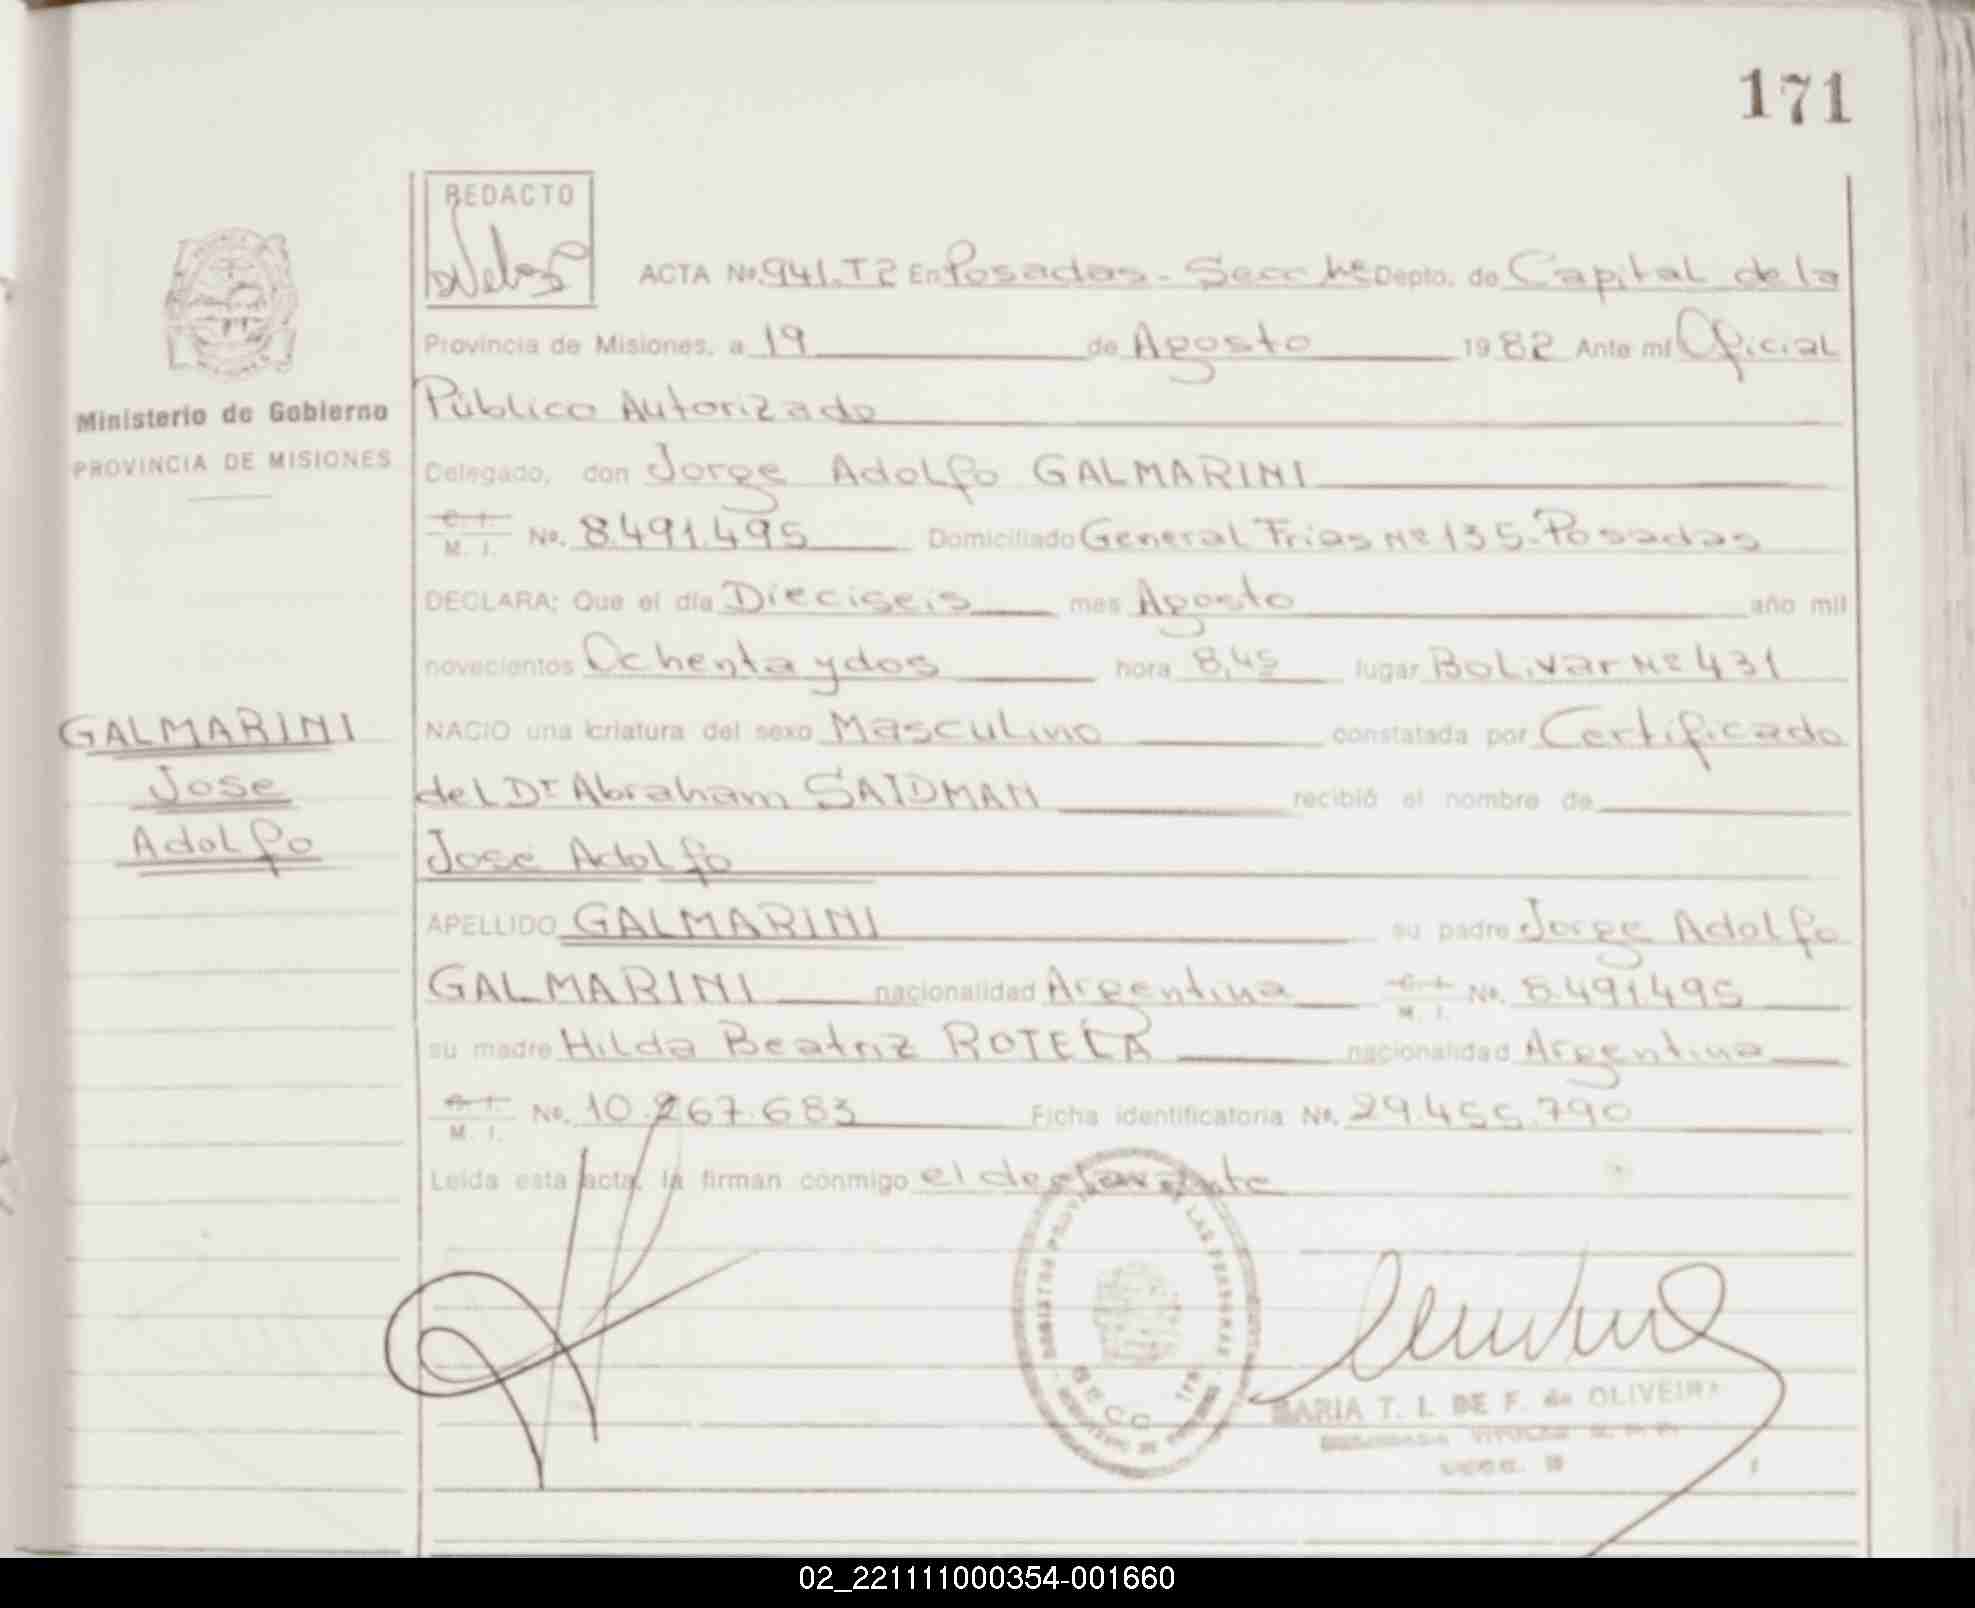 171
REDACTO
ACTA No. 941.T2 En Posadas - Secc 1ra Depto. de Capital de la
Provincia de Misiones, a 19 de Agosto 1982 Ante mí Oficial
Público Autorizado
Ministerio de Gobierno
PROVINCIA DE MISIONES
Delegado, don Jorge Adolfo GALMARINI
C. I. M. I. No. 8.491.495 Domiciliado General Frias Nº 135-Posadas
DECLARA: Que el día Dieciseis mes Agosto año mil
novecientos Ochenta y dos hora 8,45 lugar Bolivar Nº 431
GALMARINI
Jose
Adolfo
NACIO una criatura del sexo Masculino constatada por Certificado
del Dr Abraham SAIDMAN recibió el nombre de
José Adolfo
APELLIDO GALMARINI su padre Jorge Adolfo
GALMARINI nacionalidad Argentina C. I. M. I. No. 8.491.495
su madre Hilda Beatriz ROTELA nacionalidad Argentina
C. I. M. I. No. 10.267.683 Ficha identificatoria No. 29.455.790
Leída esta acta, la firman conmigo el declarante
REGISTRO PROVINCIAL DE LAS PERSONAS
SECC
MARIA T. I. DE F. de OLIVEIRA
02_221111000354-001660